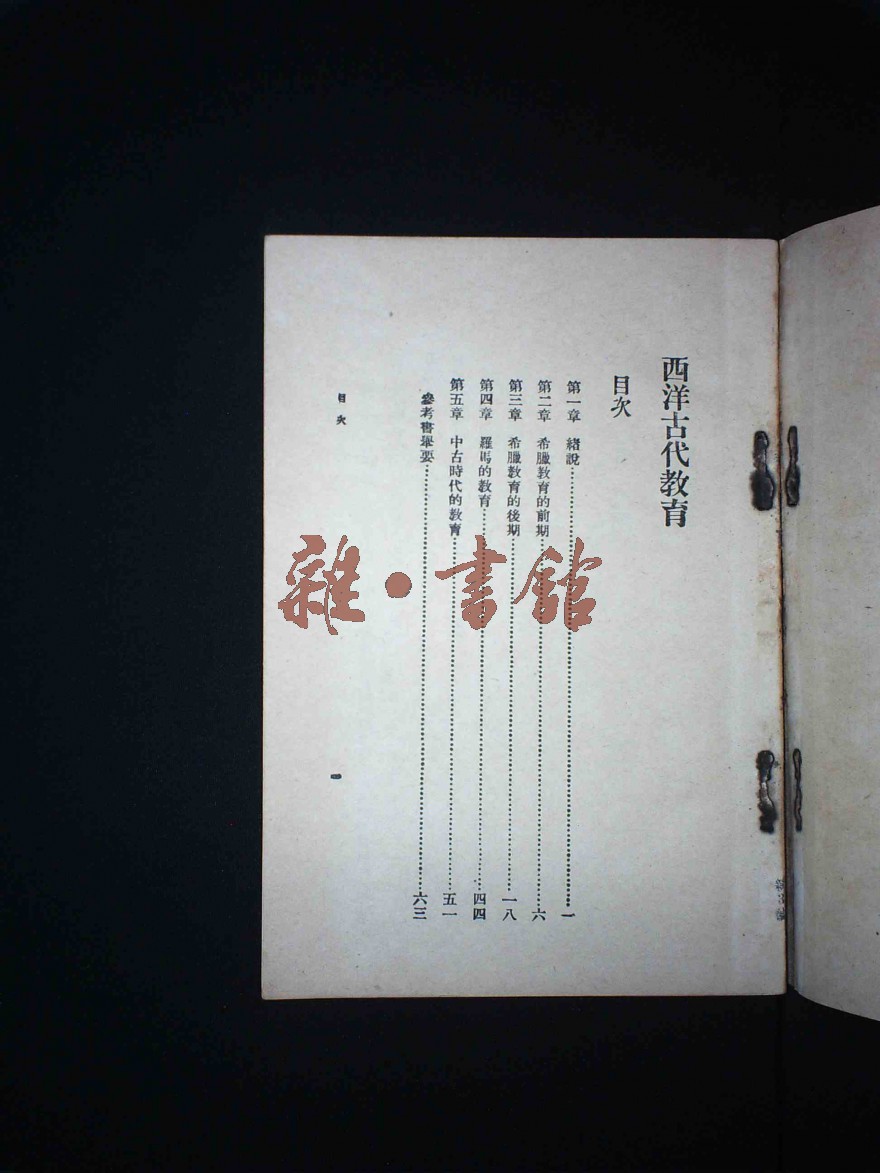 西洋古代教育
目次
第一章 緒說……一
第二章 希臘教育的前期……六
第三章 希臘教育的後期……一八
第四章 羅馬的教育……四四
第五章 中古時代的教育……五一
參考書舉要……六三
目次
一
雜·書館